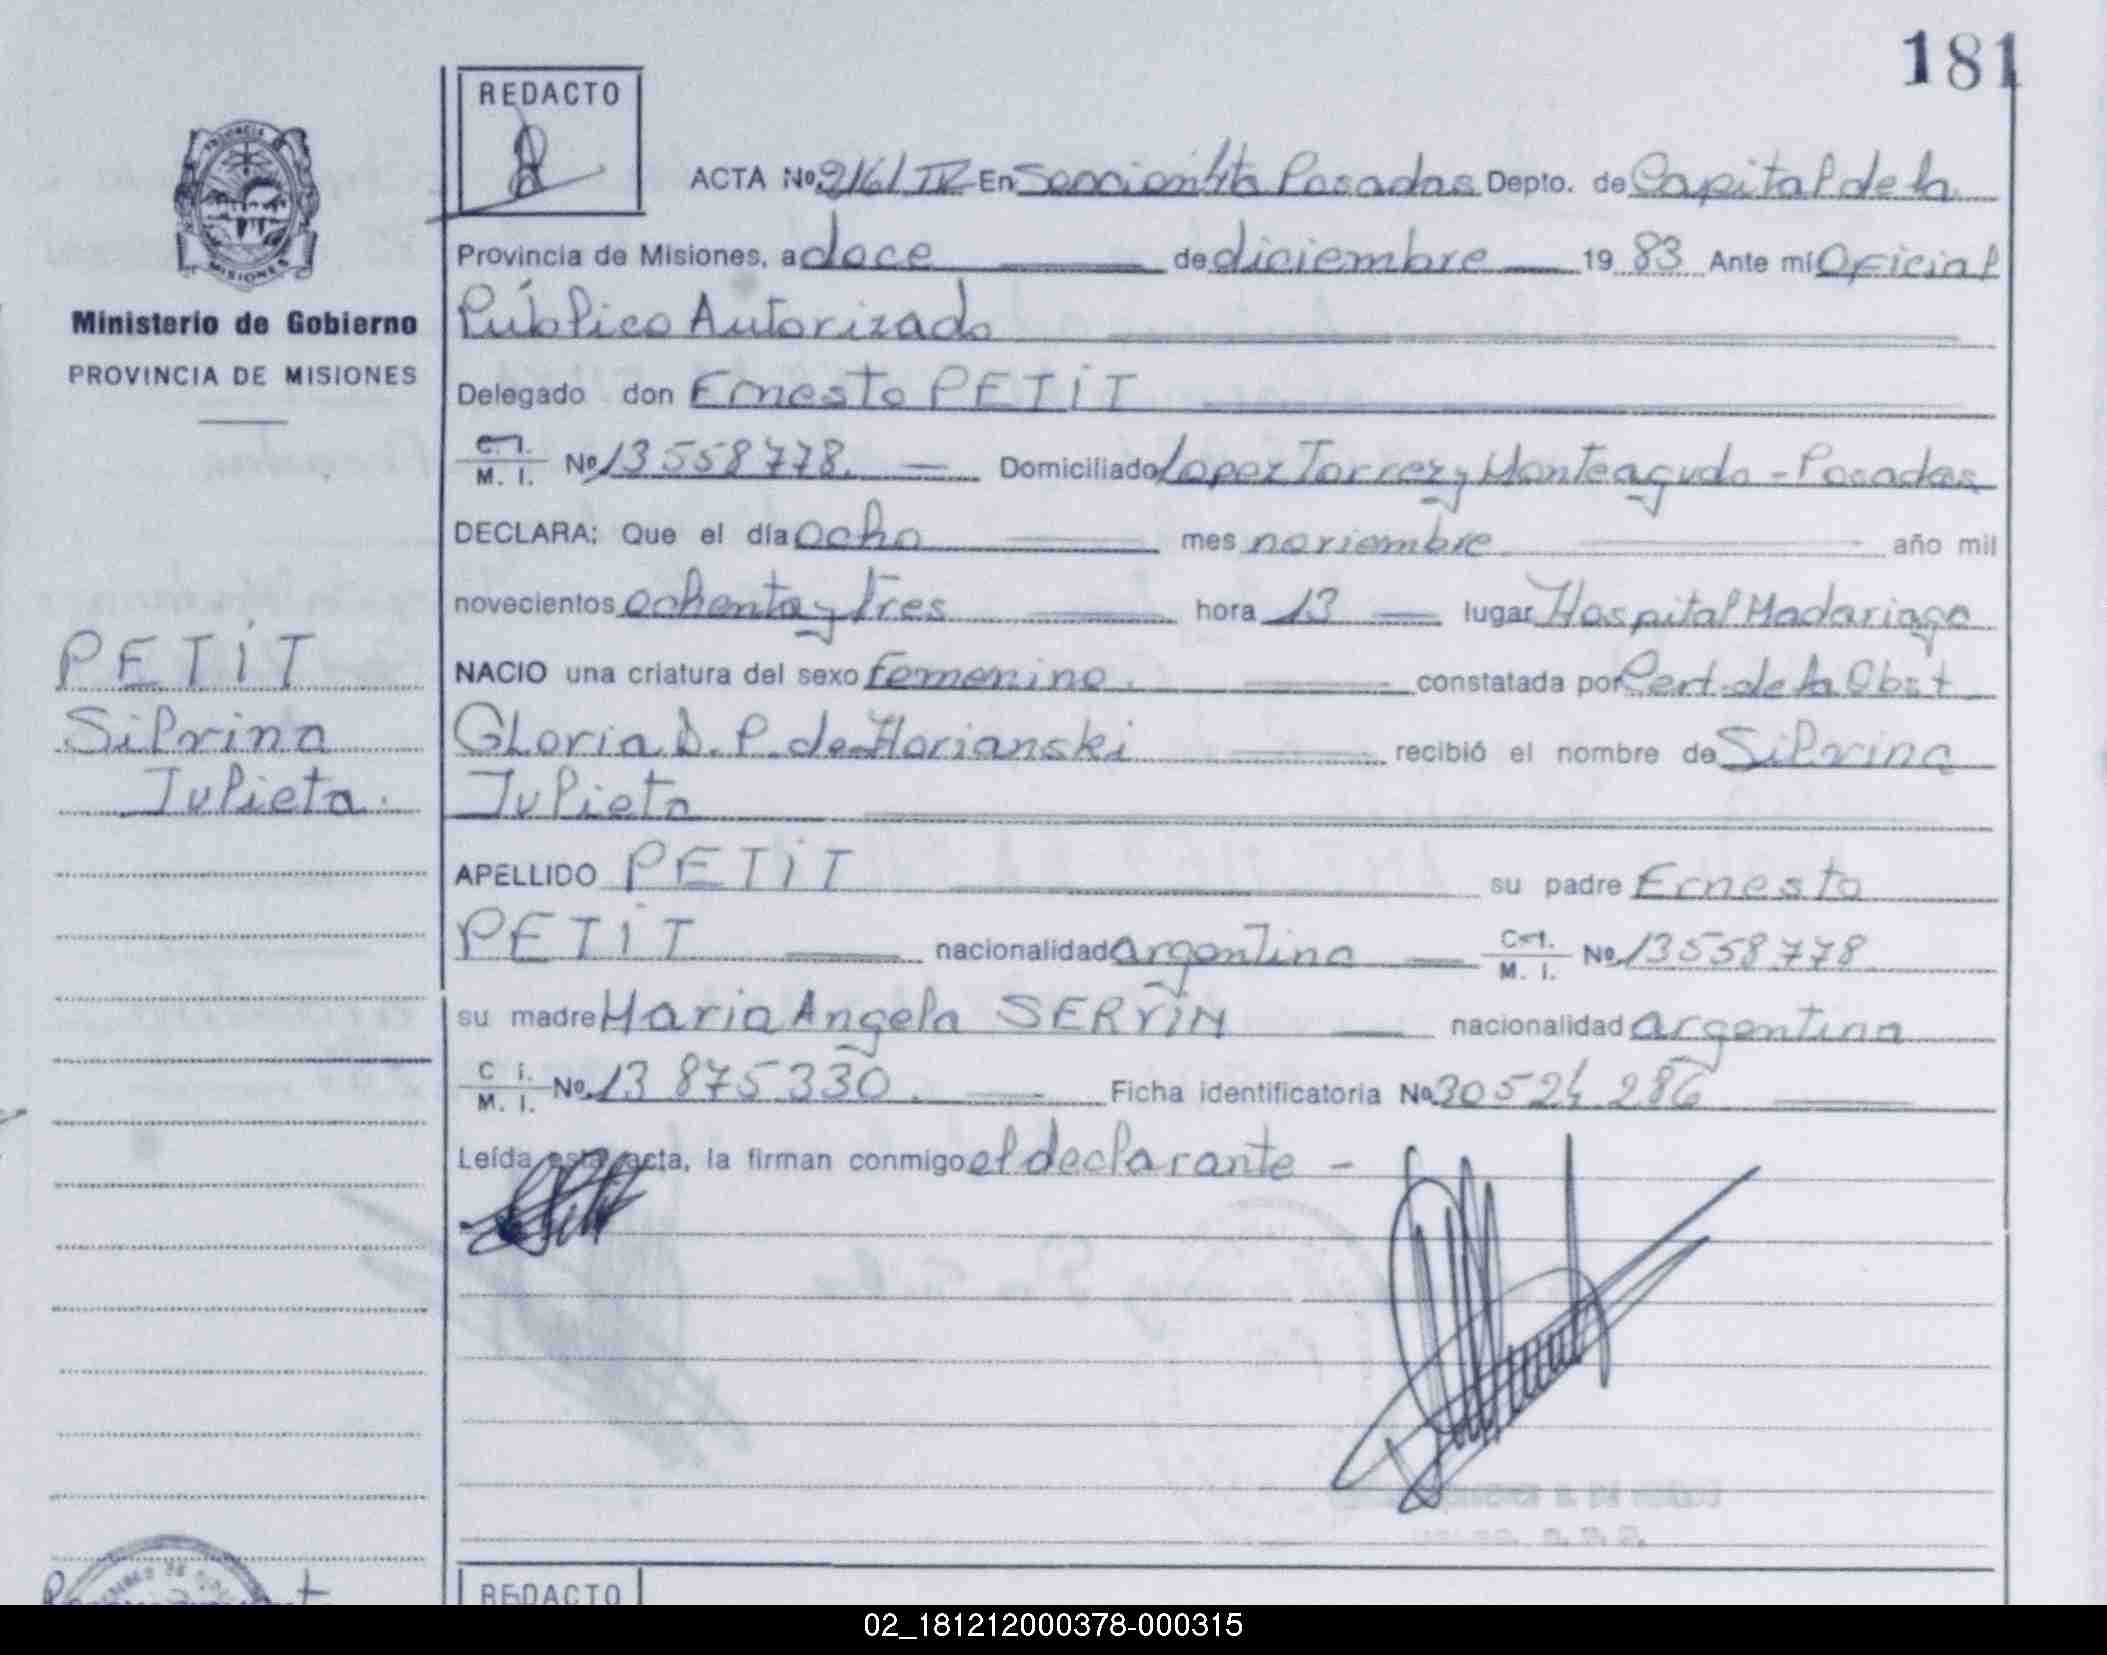 181
REDACTO
ACTA No 2161 IV En Seccion 4ta Posadas Depto. de Capital de la
Provincia de Misiones, a doce de diciembre 19 83 Ante mí Oficial
Público Autorizado
Delegado don Ernesto PETIT
C. I. / M. I. No 13558778. Domiciliado Lopez Torrez y Monteagudo - Posadas
DECLARA: Que el día ocho mes noviembre año mil
novecientos ochenta y tres hora 13 lugar Hospital Madariaga
NACIO una criatura del sexo femenino. constatada por Cert. de la Obst
Gloria D. P. de Morianski recibió el nombre de Silvina
Julieta
APELLIDO PETIT su padre Ernesto
PETIT nacionalidad argentina C. I. / M. I. No 13558778
su madre Maria Angela SERVIN nacionalidad argentina
C. I. / M. I. No. 13 875 330. Ficha identificatoria No 30 524 286
Leída esta acta, la firman conmigo el declarante -
PROVINCIA DE MISIONES
Ministerio de Gobierno
PROVINCIA DE MISIONES
PETIT
Silvina
Julieta.
REDACTO
02_181212000378-000315